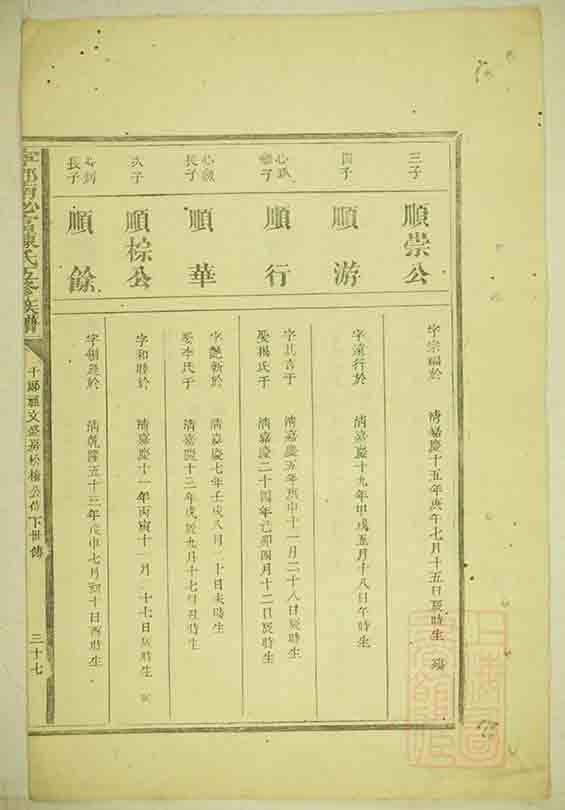 三子
順崇公
字宗福於
清嘉慶十五年庚午七月十五日辰時生 歿
四子
順游
字遠行於
清嘉慶十九年甲戌五月十八日午時生
順行
字其吉于
清嘉慶五年庚申十一月二十八日辰時生
娶楊氏于
清嘉慶二十四年己卯四月十二日辰時生
長子
順華
字艷新於
清嘉慶七年壬戌八月二十日未時生
娶李氏于
清嘉慶十三年戊辰九月十七日丑時生
次子
順棕公
字和勝於
清嘉慶十一年丙寅十一月二十七日辰時生
長子
順餘
清乾隆五十三年戊申七月初十日酉時生
陳氏五修族譜
下世傳
三十七